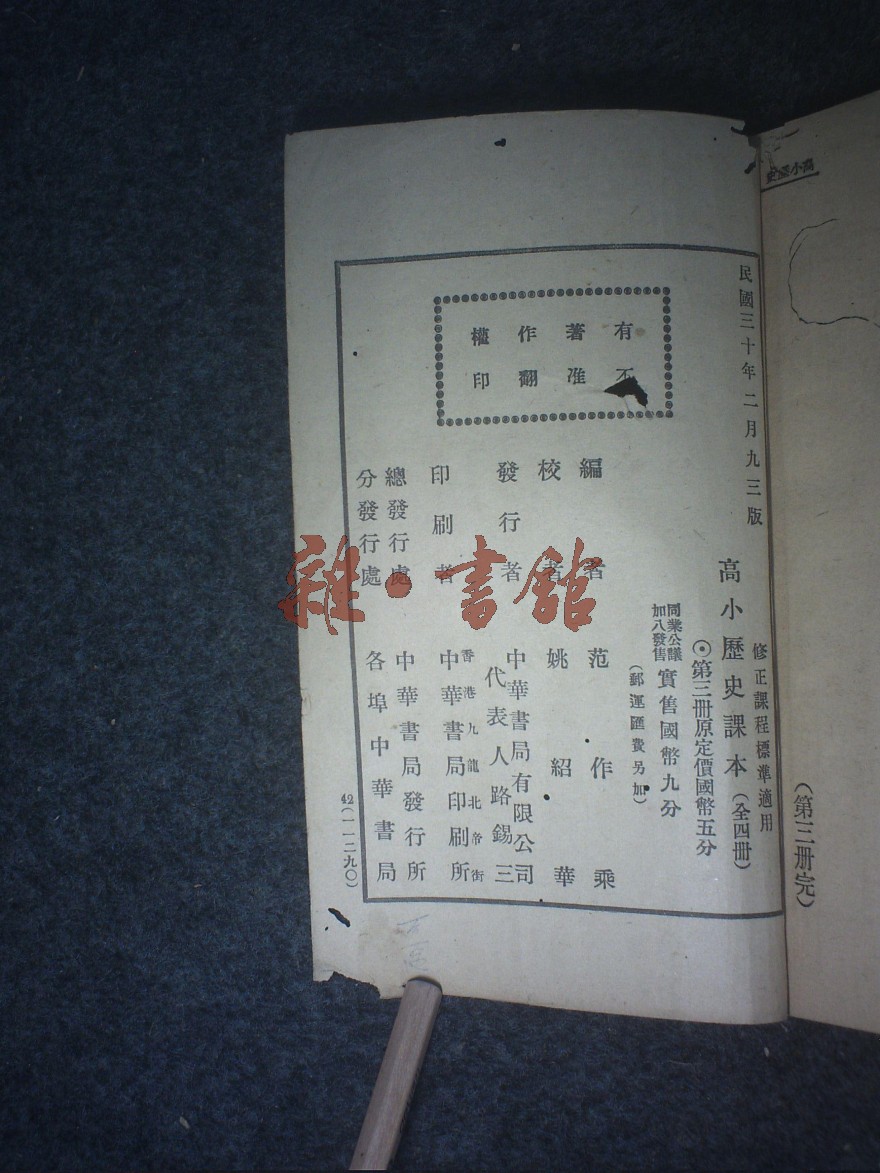 高小歷史
（第三册完）
民國三十年二月九三版
修正課程標準適用
高小歷史課本（全四册）
⊙第三册原定價國幣五分
同業公議
加八發售
實售國幣九分
（郵運匯費另加）
有著作權
不准翻印
編者 范作乘
校者 姚紹華
發行者 中華書局有限公司
代表人路錫三
印刷者 香港九龍北帝街
中華書局印刷所
總發行處 中華書局發行所
分發行處 各埠中華書局
42（一一二九〇）
雜·書館